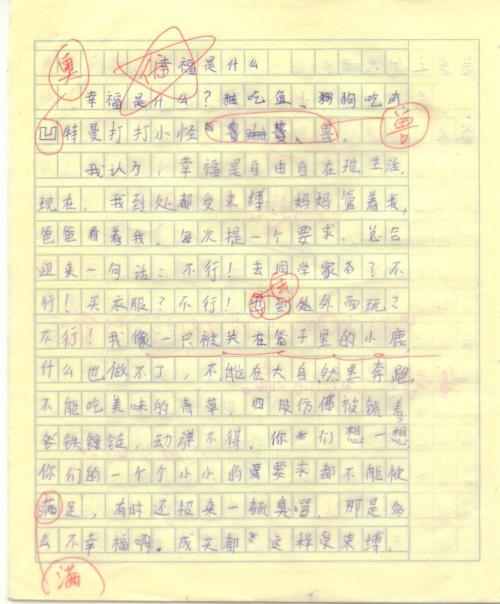 奥
幸福是什么
幸福是什么？猫吃鱼、狗狗吃肉
凹特曼打打小怪兽、兽。
兽
我认为，幸福是自由自在地生活。
现在，我到处都受束缚，妈妈管着我，
爸爸看着我，每次提一个要求，总会
迎来一句话：不行！去同学家不？不
行！买衣服？不行！到处外面玩？
去
不行！我像一只被关在笼子里的小鹿，
什么也做不了，不能在大自然里奔跑
不能吃美味的青草，四肢仿佛被锁着
铁链，动弹不得。你们想一想
你们的一个个小小的要求都不能被
满足，有时还招来一顿臭骂，那是多
么不幸福啊。成天都这样受束缚，
满